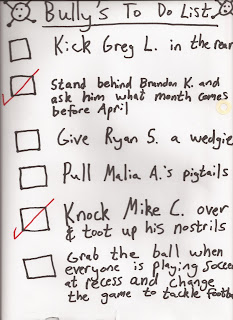 Bully's To Do List
Kick Greg L. in the rear
Stand behind Brandon K. and
ask him what month comes
before April
Give Ryan S. a wedgie
Pull Malia A.'s pigtails
Knock Mike C. over
& toot up his nostrils
Grab the ball when
everyone is playing soccer
at recess and change
the game to tackle football